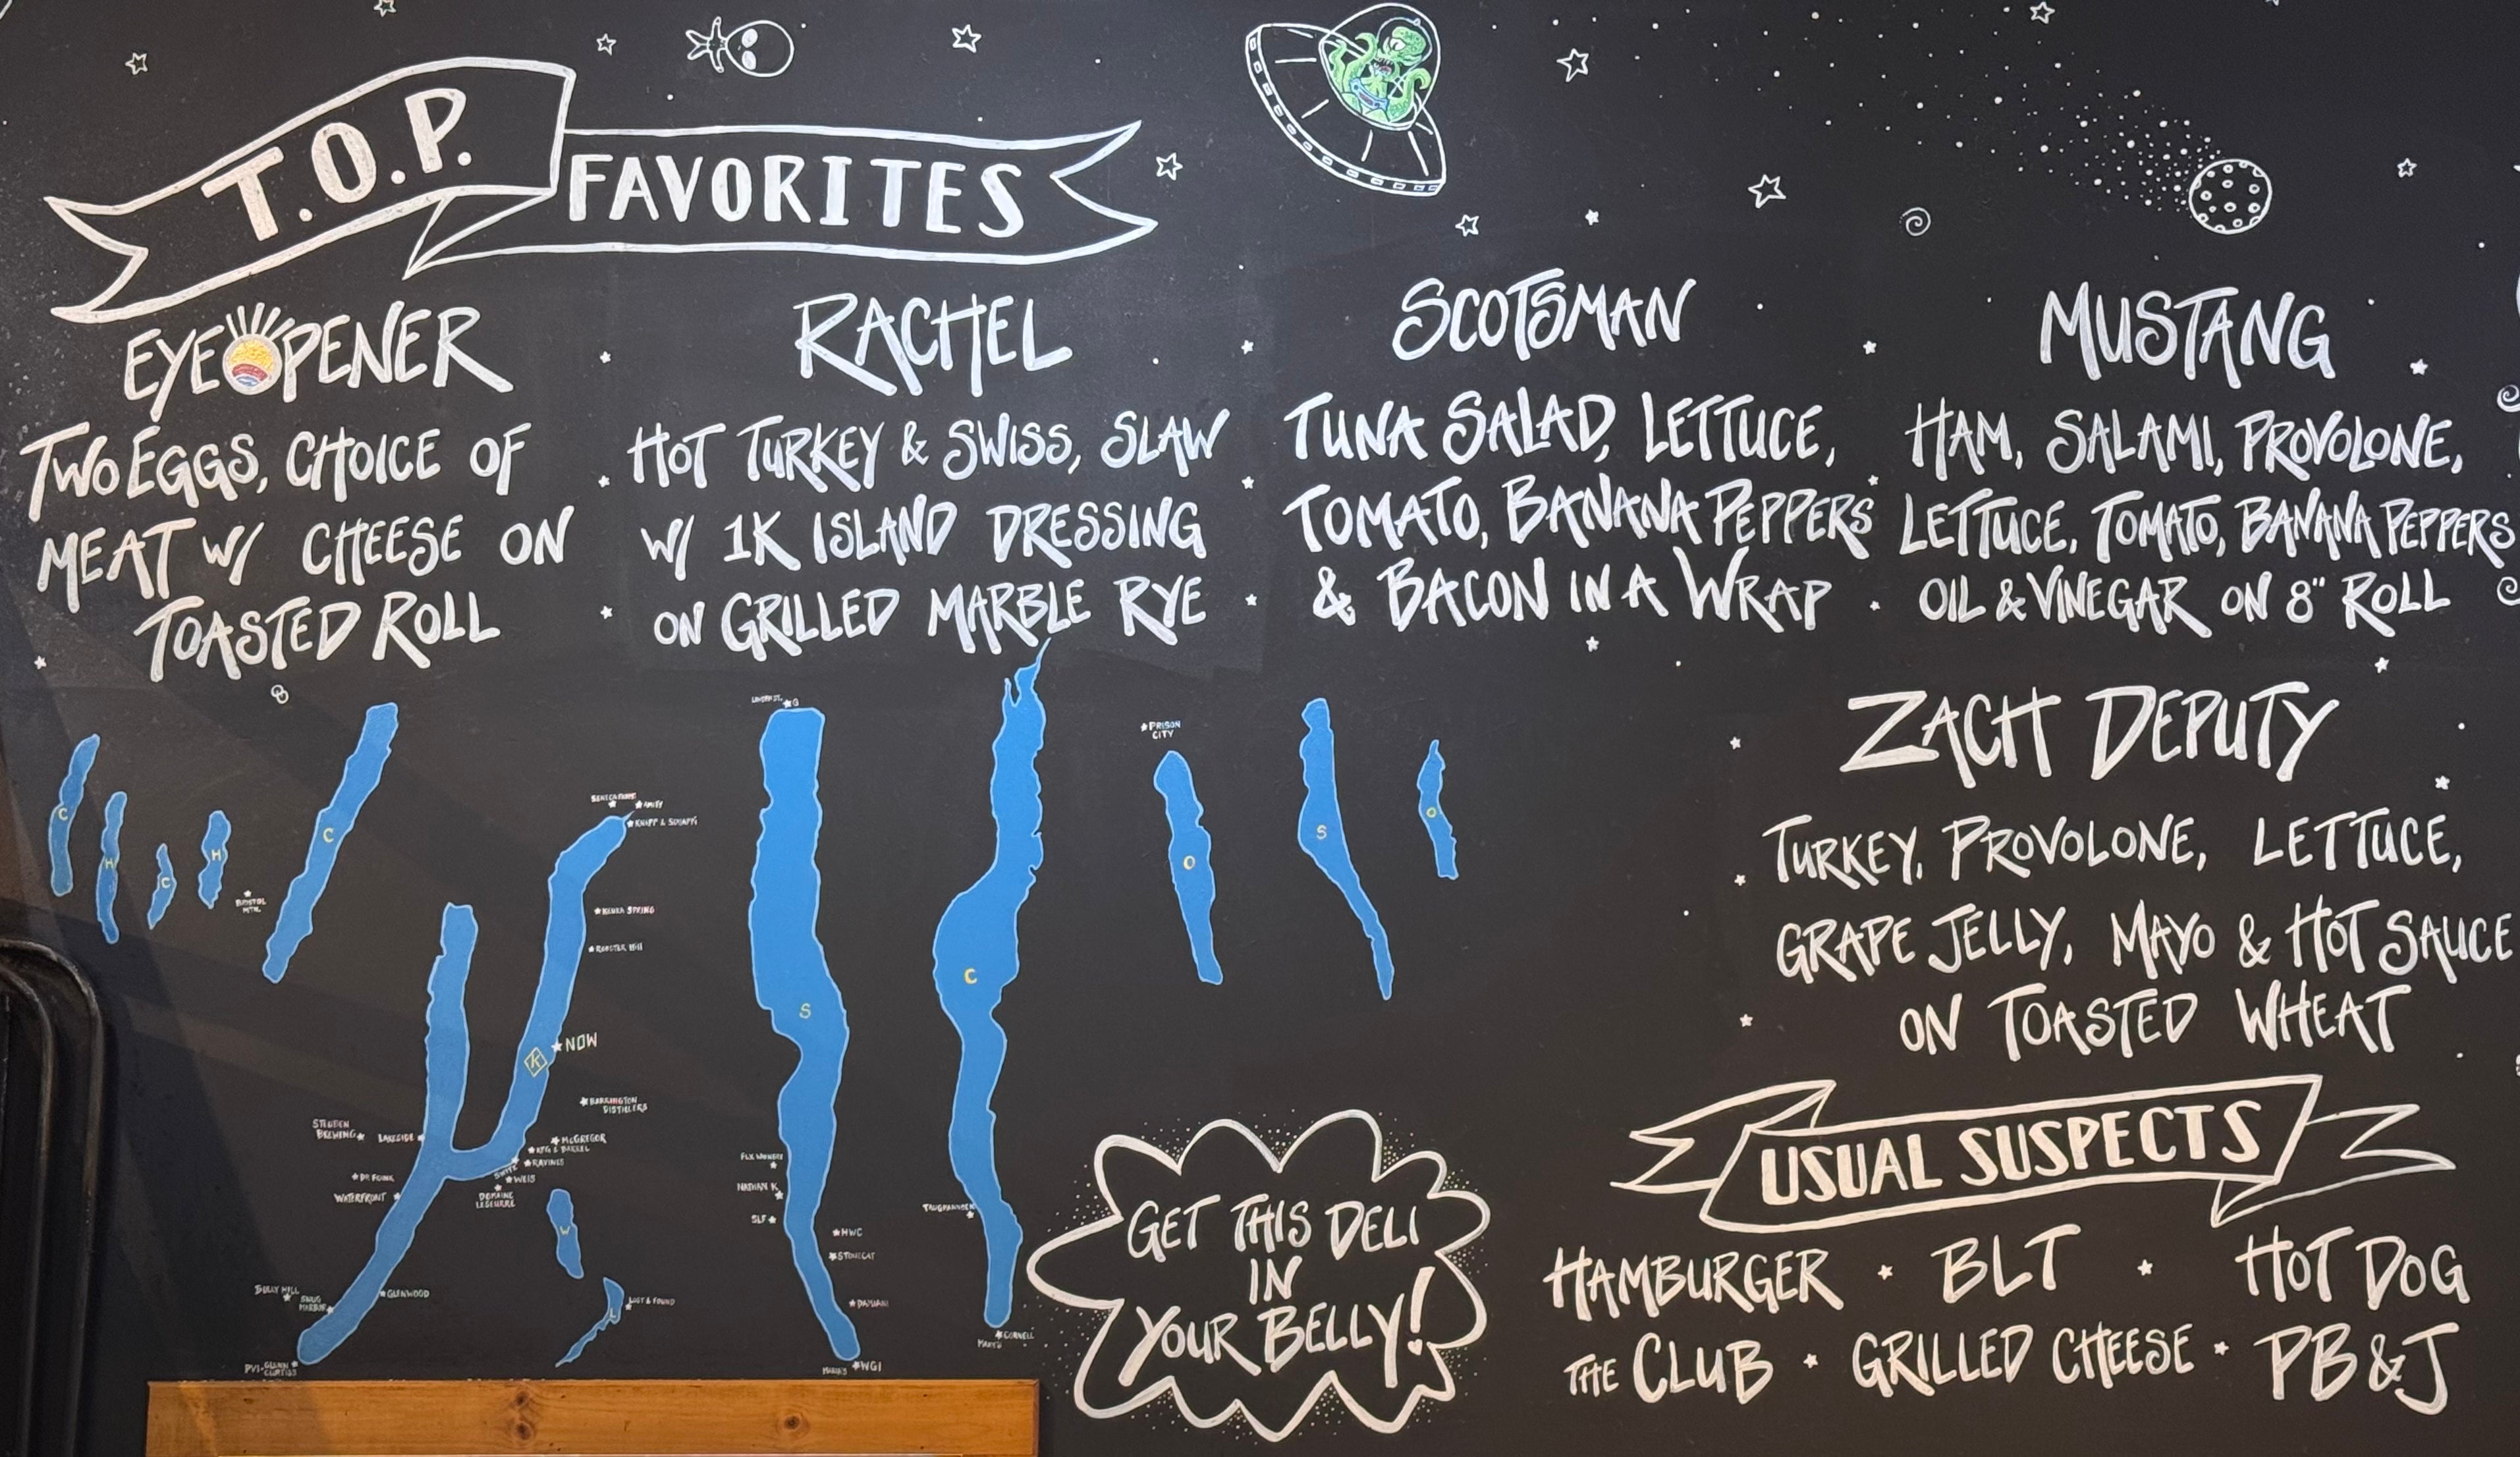 T.O.P.
FAVORITES
EYE OPENER
TWO EGGS, CHOICE OF
MEAT W/ CHEESE ON
TOASTED ROLL
RACHEL
HOT TURKEY & SWISS, SLAW
W/ 1K ISLAND DRESSING
ON GRILLED MARBLE RYE
SCOTSMAN
TUNA SALAD, LETTUCE,
TOMATO, BANANA PEPPERS
& BACON IN A WRAP
MUSTANG
HAM, SALAMI, PROVOLONE,
LETTUCE, TOMATO, BANANA PEPPERS
OIL & VINEGAR ON 8" ROLL
ZACH DEPUTY
TURKEY, PROVOLONE, LETTUCE,
GRAPE JELLY, MAYO & HOT SAUCE
ON TOASTED WHEAT
USUAL SUSPECTS
HAMBURGER BLT HOT DOG
THE CLUB GRILLED CHEESE PB & J
GET THIS DELI
IN
YOUR BELLY!
C
H
C
H
BRISTOL
MTN.
C
AMITY
KEUKA SPRING
ROOSTER HILL
K
NOW
BARRINGTON
DISTILLERS
MCGREGOR
RAVINES
WEIS
DOMAINE
LESEURRE
STEUBEN
BREWING
LAKESIDE
DR FRANK
WATERFRONT
BULLY HILL
SNUG
HARBOR
GLENWOOD
PVI-GLENN
CURTISS
W
L
LOST & FOUND
G
S
FLX WINERY
NATHAN K
SLF
HWC
STONECAT
DAMIANI
WGI
C
TAUGHANNOCK
CORNELL
PRISON
CITY
O
S
O